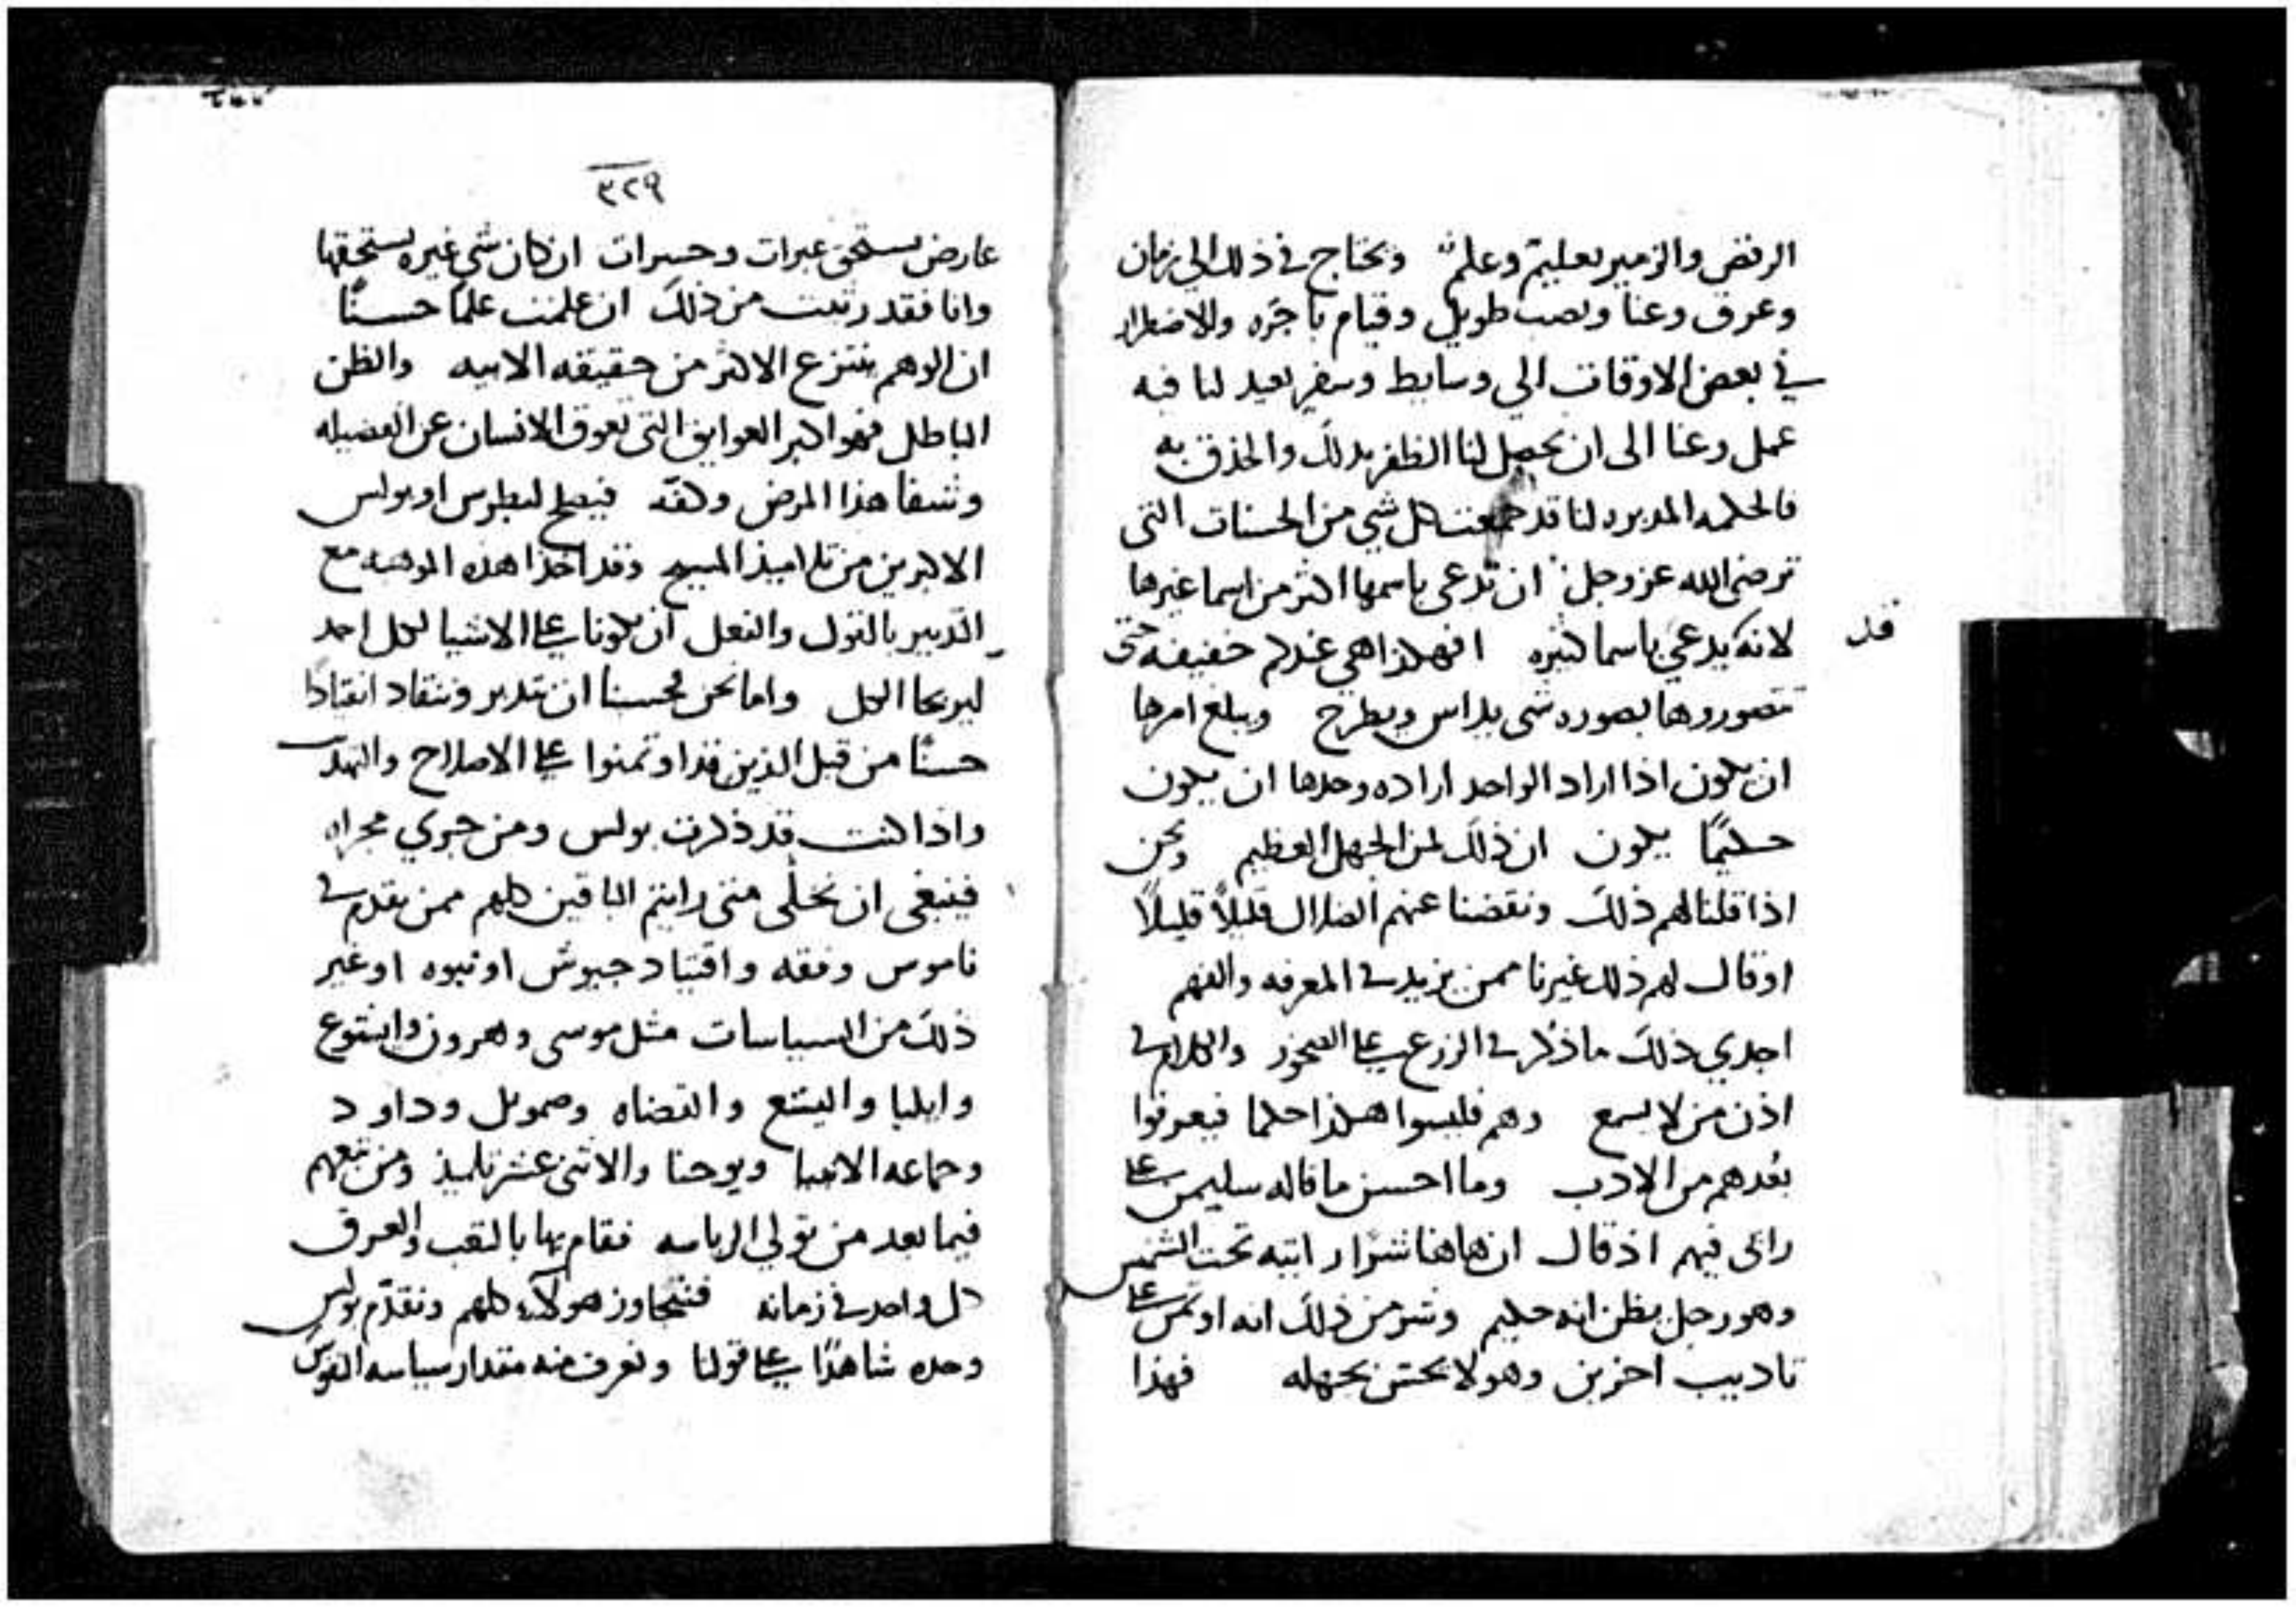 الرقص والزمير بعليم وعلم ونحتاج في ذلك الي زمان
وعرق وعنا ونصب طويل وقيام باجره والاضطرار
في بعض الاوقات الي وسايط وسفر بعيد لنا فيه
عمل وعنا الى ان يحصل لنا الظفر بذلك والحذق به
فالحكمه المدبره لنا قد جمعت كل شي من الحسنات التي
ترضي الله عز وجل ان تدعى باسمها اكثر من اسما غيرها
قد
لانه يدعي باسما كثيره افهكذا هي عندكم خفيفه حتى
تتصوروها بصوره شي يداس ويطرح ويبلغ امرها
ان يكون اذا اراد الواحد اراده وحدها ان يكون
حكيمًا يكون ان ذلك لمن الجهل العظيم ونحن
اذا قلنا لهم ذلك ونقضنا عنهم الضلال قليلاً قليلاً
او قال لهم ذلك غيرنا ممن يزيد في المعرفه والفهم
اجدي ذلك ما ذكر في الزرع على الصخور والكلام في
اذن من لا يسمع وهم فليسوا هكذا حكما فيعرفوا
بعدهم من الادب وما احسن ما قاله سليمن على
رائى فيهم اذ قال ان هاهنا شرا رايته تحت الشمس
وهو رجل يظن انه حكيم وشر من ذلك انه اوتمن على
تاديب اخرين وهو لا يحس بجهله فهذا
٣٢٩
عارض يستحق عبرات وحسرات ان كان شي غيره يستحقها
وانا فقد رثيت من ذلك ان علمت علمًا حسنًا
ان الوهم ينتزع الاكثر من حقيقه الانيه والظن
الباطل فهو اكبر العوايق التي تعوق الانسان عن الفضيله
وشفا هذا المرض وكفه فيصلح لبطرس او بولس
الاكبرين من تلاميذ المسيح وقد اخذا هذه الموهبه مع
التدبير بالقول والفعل ان يكونا على الاشيا لكل احد
ليربحا الكل واما نحن فحسبنا ان نتدبر وننقاد انقيادًا
حسنًا من قبل الذين قد اوتمنوا على الاصلاح والتهدب
واذا كنت قد ذكرت بولس ومن جري مجراه
فينبغي ان نخلي متى رايتم الباقين كلهم ممن تقدم في
ناموس وفقه واقتياد جيوش او نبوه او غير
ذلك من السياسات مثل موسى وهرون وايشوع
وايليا واليشع والقضاه وصمويل وداود
وجماعه الانبيا ويوحنا والاثنى عشر تلميذ ومن تبعهم
فيما بعد من تولي الرياسه فقام بها بالتعب والعرق
كل واحد في زمانه فنتجاوز هولاء كلهم ونقدم بولس
وحده شاهدًا على قولنا ونعرف منه مقدار سياسه النفوس